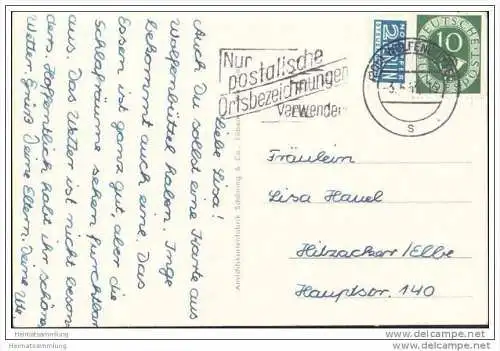 Liebe Lisa!
Auch Du sollst eine Karte aus
Wolfenbüttel haben. Inge
bekommt auch eine. Das
Essen ist ganz gut, aber die
Schlafräume sehen furchtbar
aus. Das Wetter ist nicht beson-
ders. Hoffentlich habt ihr schönes
Wetter. Grüß Deine Eltern. Deine Ute.
Ansichtskartenfabrik Schöning & Co., Lübeck
Nur
postalische
Ortsbezeichnungen
verwenden
NOTOPFER
2
BERLIN
DEUTSCHE
10
BUNDESPOST
WOLFENBÜTTEL
s
Fräulein
Lisa Hauel
Hitzacker/Elbe
Hauptstr. 140
Heimatsammlung
Heimatsammlung.de
www.delcampe.net